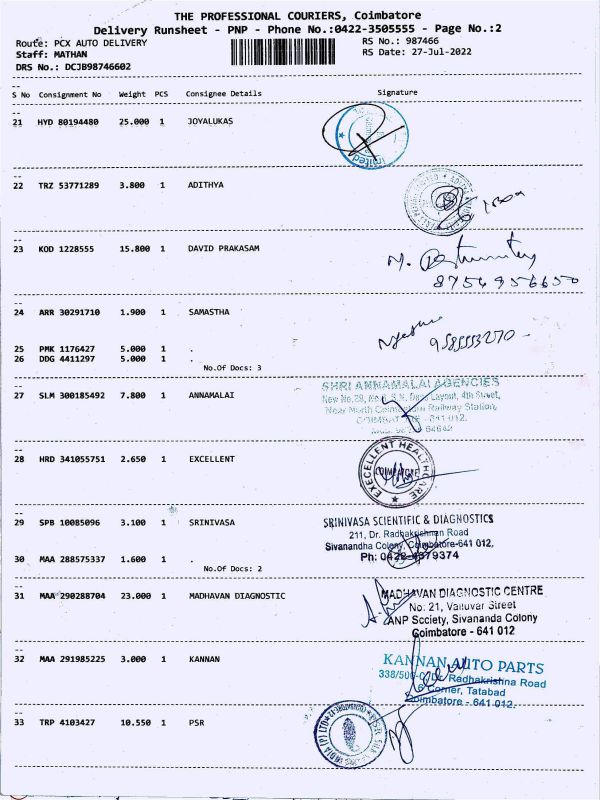 THE PROFESSIONAL COURIERS, Coimbatore
Delivery Runsheet - PNP - Phone No.:0422-3505555 - Page No.:2
Route: PCX AUTO DELIVERY RS No.: 987466
Staff: MATHAN RS Date: 27-Jul-2022
DRS No.: DCJB98746602
S No Consignment No Weight PCS Consignee Details Signature
21 HYD 80194480 25.000 1 JOYALUKAS
22 TRZ 53771289 3.800 1 ADITHYA
23 KOD 1228555 15.800 1 DAVID PRAKASAM
8754956650
24 ARR 30291710 1.900 1 SAMASTHA
25 PMK 1176427 5.000 1 .
26 DDG 4411297 5.000 1 .
No.Of Docs: 3
27 SLM 300185492 7.800 1 ANNAMALAI
SHRI ANNAMALAI AGENCIES
Layout, 4th Street,
Near North Coimbatore Railway Station,
28 HRD 341055751 2.650 1 EXCELLENT
EXECELLENT HEALTHCARE
COIMBATORE
29 SPB 10085096 3.100 1 SRINIVASA
SRINIVASA SCIENTIFIC & DIAGNOSTICS
211, Dr. Radhakrishnan Road
Sivanandha Colony, Coimbatore-641 012.
30 MAA 288575337 1.600 1 .
Ph: 0422-4379374
No.Of Docs: 2
31 MAA 290288704 23.000 1 MADHAVAN DIAGNOSTIC
MADHAVAN DIAGNOSTIC CENTRE
No: 21, Valluvar Street
ANP Society, Sivananda Colony
Coimbatore - 641 012
32 MAA 291985225 3.000 1 KANNAN
KANNAN AUTO PARTS
Dr. Radhakrishna Road
Corner, Tatabad
Coimbatore - 641 012.
33 TRP 4103427 10.550 1 PSR